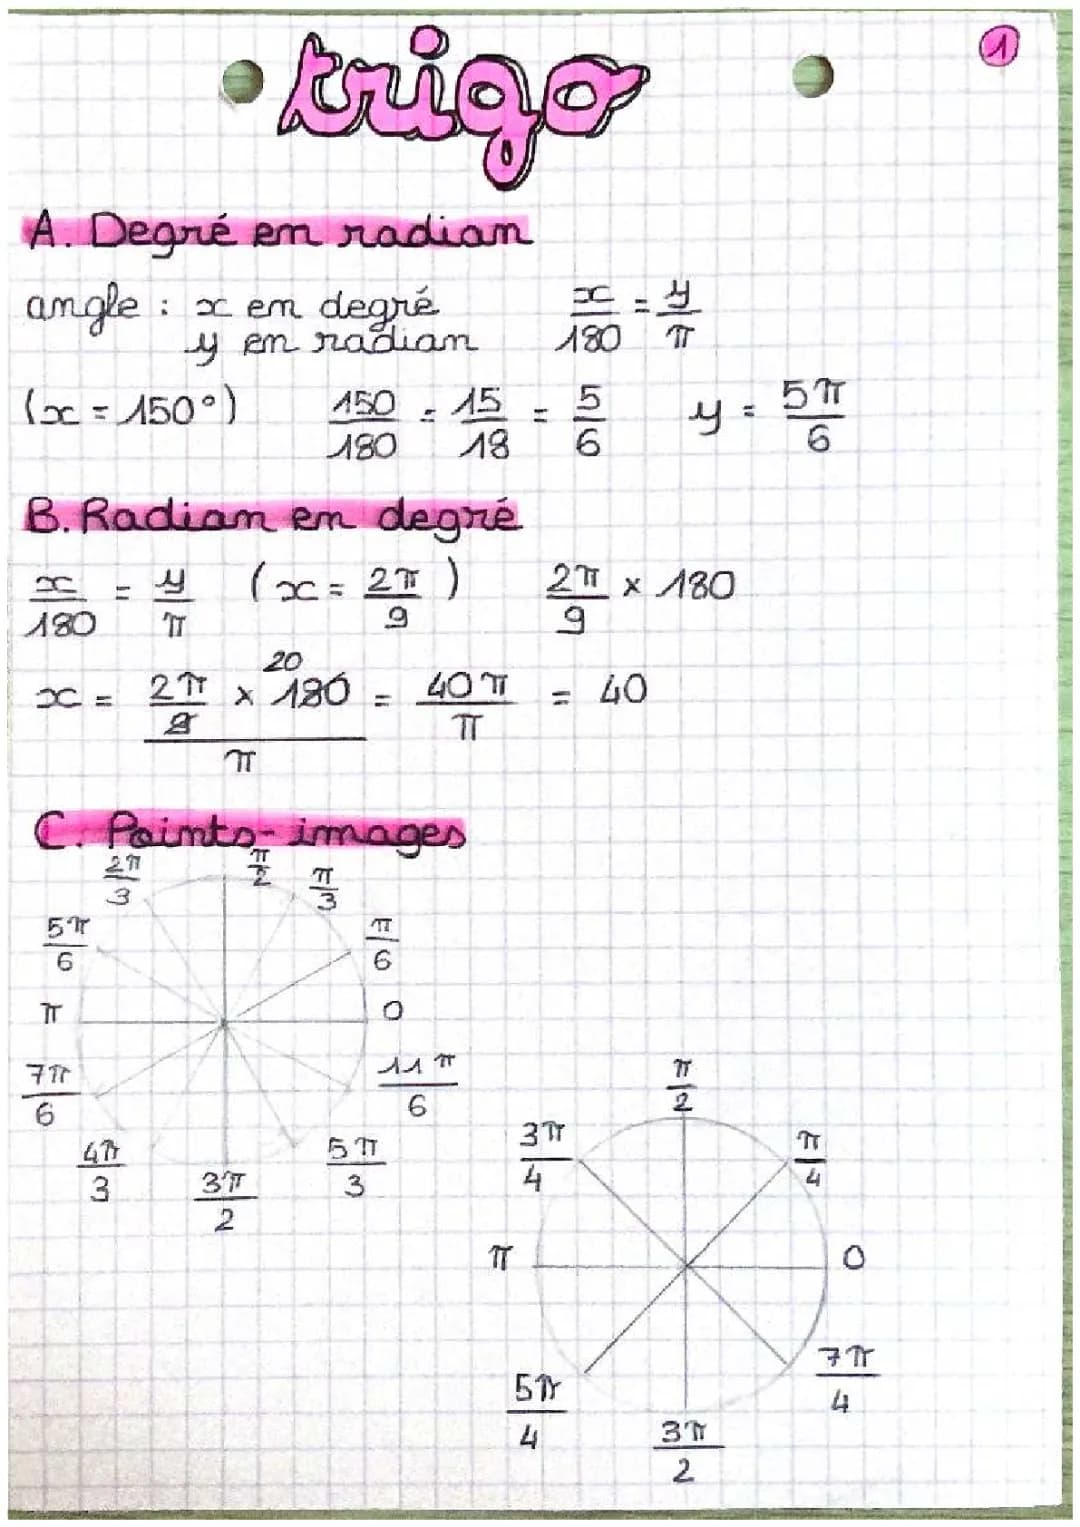 trigo
1
A. Degré en radian
angle : x en degré x/180 = y/π
y en radian
(x = 150°) 150/180 = 15/18 = 5/6 y = 5π/6
B. Radian en degré
x/180 = y/π (x = 2π/9) 2π/9 × 180
20
x = 2π/9 × 180 / π = 40π/π = 40
C. Points-images
2π/3 π/2 π/3
5π/6 π/6
π 0
7π/6 11π/6
4π/3 3π/2 5π/3
π/2
3π/4 π/4
π 0
5π/4 7π/4
3π/2